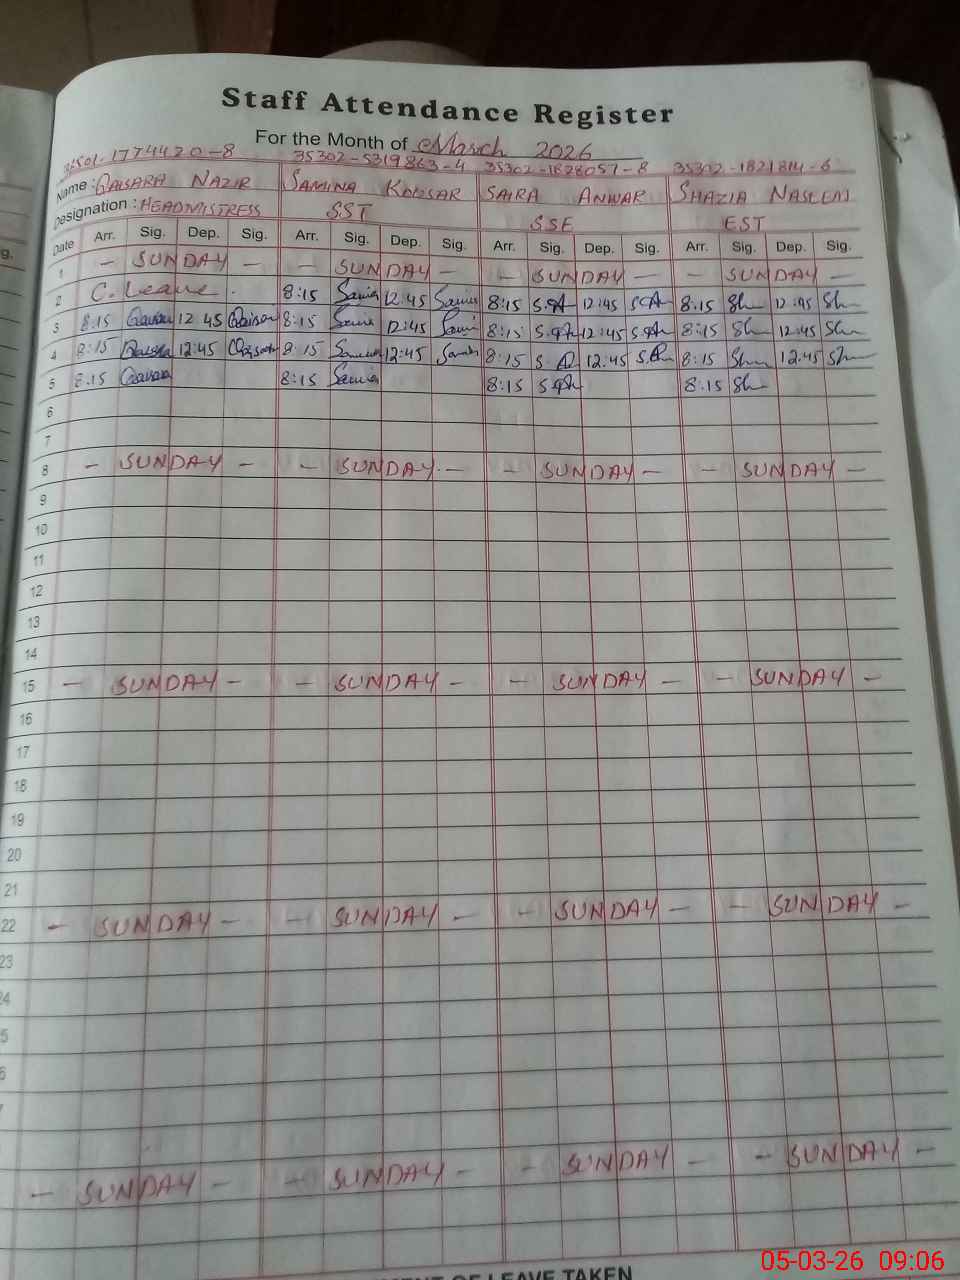 Staff Attendance Register
For the Month of March 2026
32501-1774420-8 35302-5319863-4 35302-1828057-8 35302-1821814-6
Name: QAISARA NAZIR SAMINA KOUSAR SAIRA ANWAR SHAZIA NASEEM
Designation: HEADMISTRESS SST SSE EST
Date Arr. Sig. Dep. Sig. Arr. Sig. Dep. Sig. Arr. Sig. Dep. Sig. Arr. Sig. Dep. Sig.
1 - SUNDAY - - SUNDAY - - SUNDAY - - SUNDAY -
2 C. Leave. 8:15 12:45 8:15 12:45 8:15 12:45
3 8:15 12:45 8:15 12:45 8:15 12:45 8:15 12:45
4 8:15 12:45 8:15 12:45 8:15 12:45 8:15 12:45
5 8:15 8:15 8:15 8:15
6
7
8 - SUNDAY - - SUNDAY - - SUNDAY - - SUNDAY -
9
10
11
12
13
14
15 - SUNDAY - - SUNDAY - - SUNDAY - - SUNDAY -
16
17
18
19
20
21
22 - SUNDAY - - SUNDAY - - SUNDAY - - SUNDAY -
23
- SUNDAY - - SUNDAY - - SUNDAY - - SUNDAY -
OF LEAVE TAKEN
05-03-26 09:06